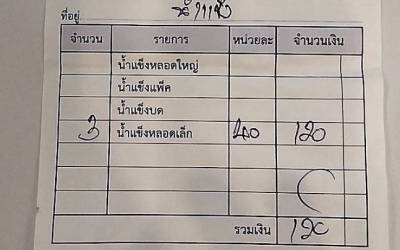 ที่อยู่
จำนวน รายการ หน่วยละ จำนวนเงิน
น้ำแข็งหลอดใหญ่
น้ำแข็งแพ็ค
น้ำแข็งบด
3 น้ำแข็งหลอดเล็ก 40 120
รวมเงิน 120